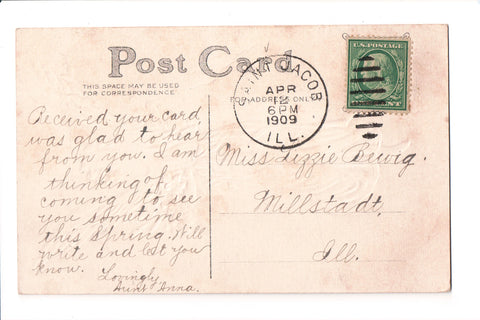 Post Card
THIS SPACE MAY BE USED
FOR CORRESPONDENCE
FOR ADDRESS ONLY
SAINT JACOB
APR
12
6 PM
1909
ILL.
U.S. POSTAGE
Received your card,
was glad to hear
from you. I am
thinking of
coming to see
you sometime
this Spring. Will
write and let you
know.
Lovingly
Aunt Anna.
Miss Lizzie Bewig.
Millstadt,
Ill.